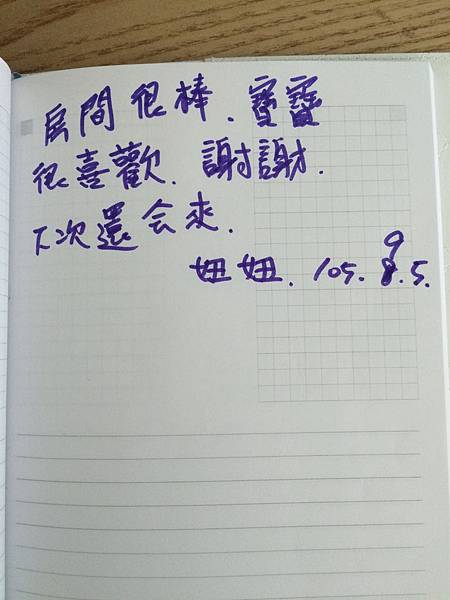 房間很棒.寶寶
很喜歡.謝謝.
下次還会來.
妞妞.105.9.5.